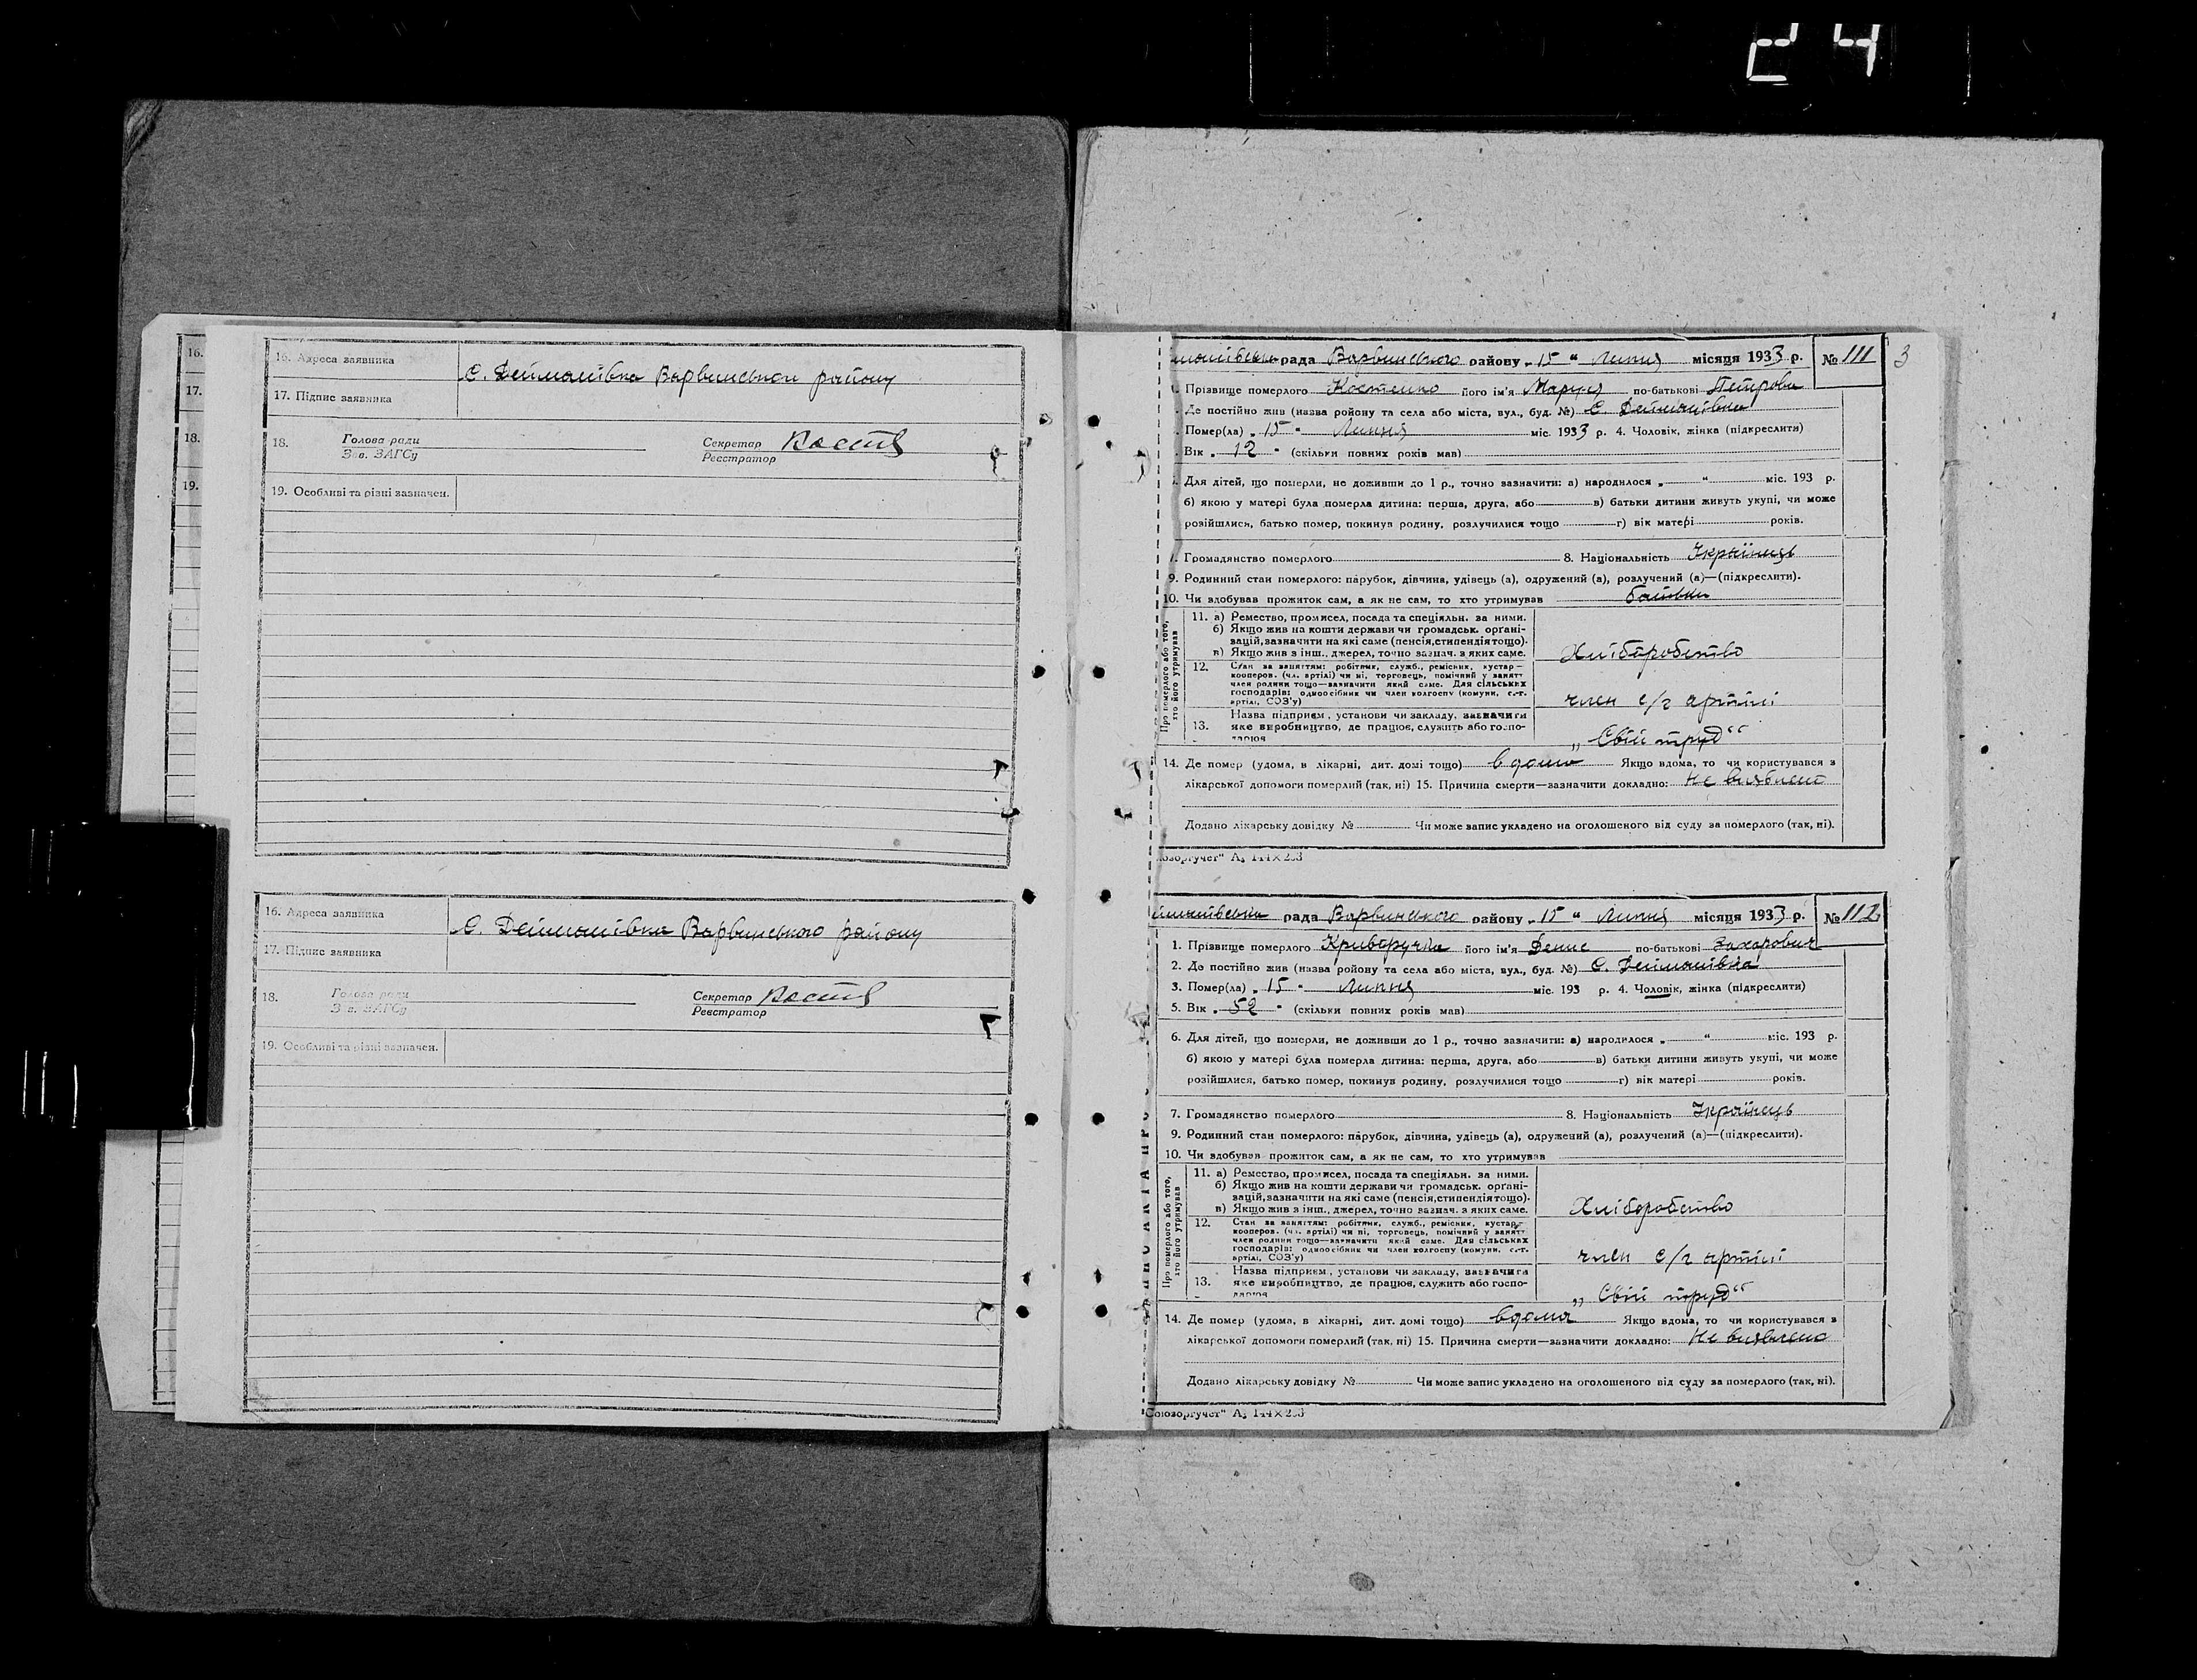 24
16.
17.
18.
19.
16. Адреса заявника
с. Дейманівка Варвинського району
17. Підпис заявника
18. Голова ради
Зав. ЗАГСу
Секретар
Реєстратор
19. Особливі та різні зазначен.
16. Адреса заявника
с. Дейманівка Варвинського району
17. Підпис заявника
18. Голова ради
Зав. ЗАГСу
Секретар
Реєстратор
19. Особливі та різні зазначен.
рада Варвинського району „15“ Липня місяця 1933 р. № 111
3
Прізвище померлого Костенко його ім'я по-батькові Петрови
Де постійно жив (назва району та села або міста, вул., буд. №) с. Дейманівка
Помер(ла) „15“ Липня міс. 1933 р. 4. Чоловік, жінка (підкреслити)
Вік „12“ (скільки повних років мав)
Для дітей, що померли, не доживши до 1 р., точно зазначити: а) народилося „ “ міс. 193 р.
б) якою у матері була померла дитина: перша, друга, або в) батьки дитини живуть укупі, чи може
розійшлися, батько помер, покинув родину, розлучилися тощо г) вік матері років.
Громадянство померлого 8. Національність Українець
9. Родинний стан померлого: парубок, дівчина, удівець (а), одружений (а), розлучений (а)—(підкреслити).
10. Чи здобував прожиток сам, а як не сам, то хто утримував батьки
Про померлого або того, хто його утримував
11. а) Ремество, промисел, посада та спеціяльн. за ними.
б) Якщо жив на кошти держави чи громадськ. органі-
зацій, зазначити на які саме (пенсія, стипендія тощо).
в) Якщо жив з інш. джерел, точно зазнач. з яких саме.
Хліборобство
12. Стан за заняттям: робітник, служб., ремісник, кустар—
кооперов. (чл. артілі) чи ні, торговець, помічний у занятт
член родини тощо—зазначити який саме. Для сільських
господарів: одноосібник чи член колгоспу (комуни, с.-г.
артілі, СОЗ'у)
член с/г артілі
13. Назва підприєм, установи чи закладу, зазначити
яке виробництво, де працює, служить або госпо-
дарює
„Свій труд“
14. Де помер (удома, в лікарні, дит. домі тощо) вдома Якщо вдома, то чи користувався з
лікарської допомоги померлий (так, ні) 15. Причина смерти—зазначити докладно: Не виявлено
Додано лікарську довідку № Чи може запис укладено на оголошеного від суду за померлого (так, ні).
оюзоргучет" А₅ 144×203
рада Варвинського району „15“ Липня місяця 1933 р. № 112
1. Прізвище померлого Криворучка його ім'я Денис по-батькові Захарович
2. Де постійно жив (назва району та села або міста, вул., буд. №) с. Дейманівка
3. Помер(ла) „15“ Липня міс. 193 р. 4. Чоловік, жінка (підкреслити)
5. Вік „52“ (скільки повних років мав)
6. Для дітей, що померли, не доживши до 1 р., точно зазначити: а) народилося „ “ міс. 193 р.
б) якою у матері була померла дитина: перша, друга, або в) батьки дитини живуть укупі, чи може
розійшлися, батько помер, покинув родину, розлучилися тощо г) вік матері років.
7. Громадянство померлого 8. Національність Українець
9. Родинний стан померлого: парубок, дівчина, удівець (а), одружений (а), розлучений (а)—(підкреслити).
10. Чи здобував прожиток сам, а як не сам, то хто утримував
Про померлого або того, хто його утримував
11. а) Ремество, промисел, посада та спеціяльн. за ними.
б) Якщо жив на кошти держави чи громадськ. органі-
зацій, зазначити на які саме (пенсія, стипендія тощо).
в) Якщо жив з інш. джерел, точно зазнач. з яких саме.
Хліборобство
12. Стан за заняттям: робітник, служб., ремісник, кустар—
кооперов. (чл. артілі) чи ні, торговець, помічний у занятт
член родини тощо—зазначити який саме. Для сільських
господарів: одноосібник чи член колгоспу (комуни, с.-г.
артілі, СОЗ'у)
член с/г артілі
13. Назва підприєм, установи чи закладу, зазначити
яке виробництво, де працює, служить або госпо-
дарює
„Свій труд“
14. Де помер (удома, в лікарні, дит. домі тощо) вдома Якщо вдома, то чи користувався з
лікарської допомоги померлий (так, ні) 15. Причина смерти—зазначити докладно: Не виявлено
Додано лікарську довідку № Чи може запис укладено на оголошеного від суду за померлого (так, ні).
Союзоргучет" А₅ 144×203